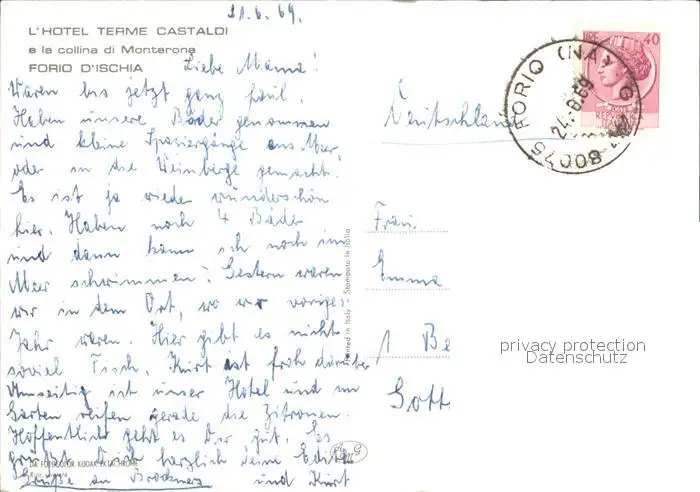 21.6.69.
L'HOTEL TERME CASTALDI
e la collina di Monterone
FORIO D'ISCHIA
Liebe Mama!
Waren bis jetzt ganz faul.
Haben unsere Bäder genommen
und kleine Spaziergänge ans Meer,
oder in die Weinberge gemacht.
Es ist ja wieder wunderschön
hier. Haben noch 4 Bäder
und dann kann ich noch im
Meer schwimmen. Gestern waren
wir in dem Ort, wo wir voriges
Jahr waren. Hier gibt es nicht
soviel Fisch. Kurt ist froh darüber
Umseitig ist unser Hotel und im
Garten reifen gerade die Zitronen.
Hoffentlich geht es Dir gut. Es
grüßt Dich herzlich deine Edith
Grüße an Brockners und Kurt
DA FOTOCOLOR KODAK EKTACHROME
Printed in Italy - Stampato in Italia
40
POSTE
REPUBBLICA
ITALIANA
80075 FORIO (NA)
24.6.69
Deutschland
Frau
Emma
1 Be
Gott
privacy protection
Datenschutz